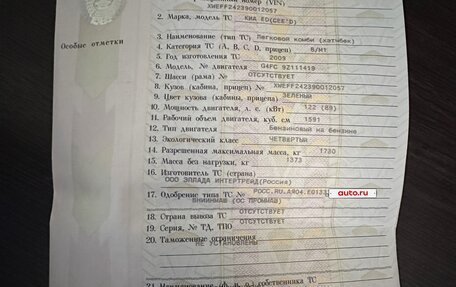 XWEFF242390012057
Особые отметки
2. Марка, модель ТС КИА ED(CEE'D)
3. Наименование (тип ТС) Легковой комби (хэтчбек)
4. Категория ТС (А, В, С, D, прицеп) B/MT
5. Год изготовления ТС 2009
6. Модель, № двигателя G4FC 9Z111419
7. Шасси (рама) № ОТСУТСТВУЕТ
8. Кузов (кабина, прицеп) № XWEFF242390012057
9. Цвет кузова (кабины, прицепа) ЗЕЛЕНЫЙ
10. Мощность двигателя, л. с. (кВт) 122 (89)
11. Рабочий объем двигателя, куб. см 1591
12. Тип двигателя Бензиновый на бензине
13. Экологический класс ЧЕТВЕРТЫЙ
14. Разрешенная максимальная масса, кг 1730
15. Масса без нагрузки, кг 1373
16. Изготовитель ТС (страна)
ООО ЭЛЛАДА ИНТЕРТРЕЙД(Россия)
17. Одобрение типа ТС № РОСС.RU.
auto.ru
18. Страна вывоза ТС ОТСУТСТВУЕТ
19. Серия, № ТД, ТПО ОТСУТСТВУЕТ
20. Таможенные ограничения
НЕ УСТАНОВЛЕНЫ
собственника ТС